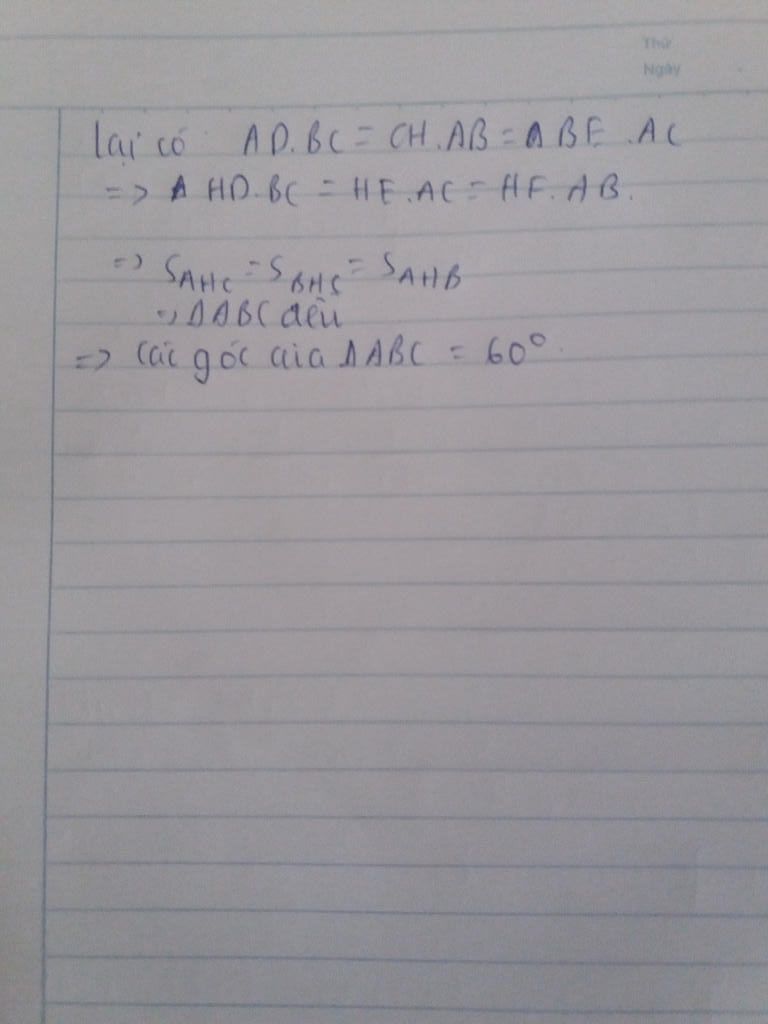 Thứ
Ngày
lại có AD.BC = CH.AB = BE.AC
=> HD.BC = HE.AC = HF.AB.
=> S_AHC = S_BHC = S_AHB
=> ΔABC đều
=> các góc của ΔABC = 60°.